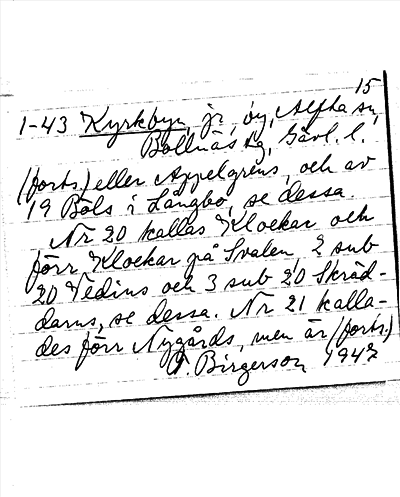 15
1-43 Kyrkbyn, jr, by, Alfta sn,
Bollnäs tg, Gävl. l.
(forts.) eller Appelgrens, och av
19 Böls i Långbo, se dessa.
Nr 20 kallas Klockar och
förr Klockar på Svalen, 2 sub
20 Vedins och 3 sub 20 Skräd-
dars, se dessa. Nr 21 kalla-
des förr Nygårds, men är (forts.)
J. Birgerson 1947